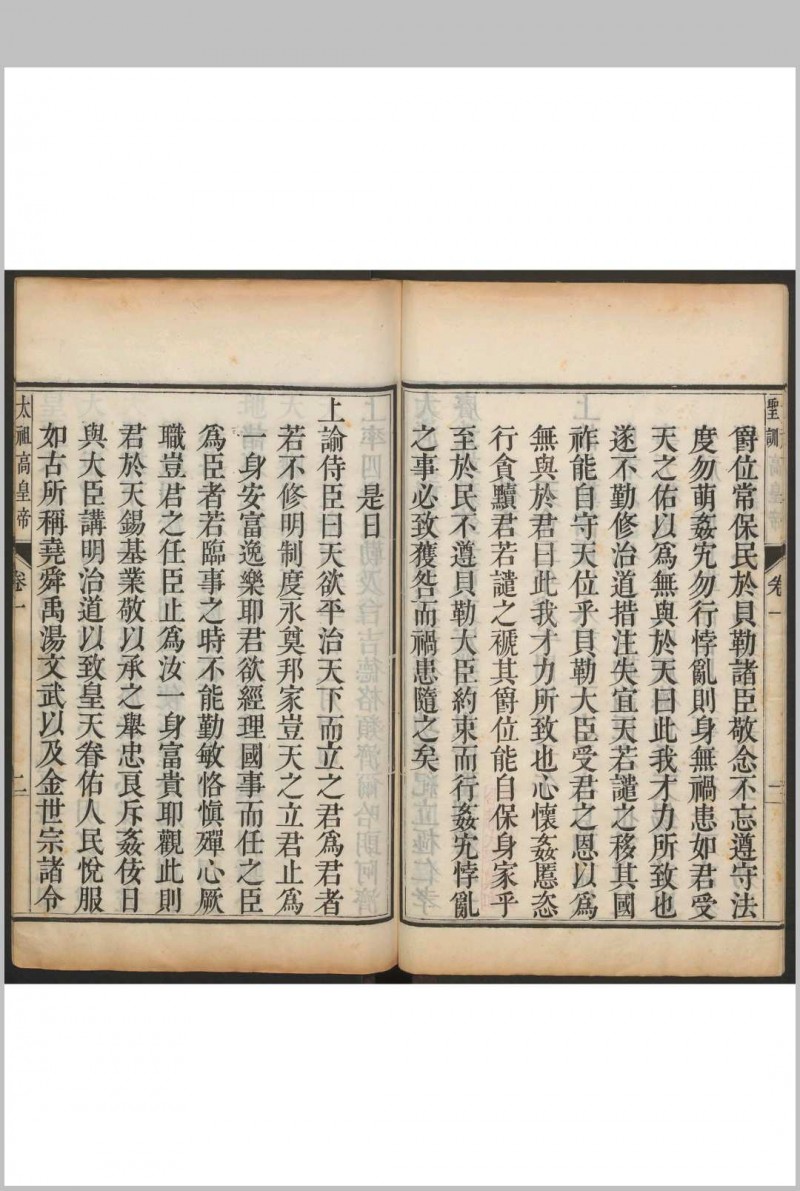 聖訓
卷一
二
爵位常保民於貝勒諸臣敬念不忘遵守法
度勿萌姦宄勿行悖亂則身無禍患如君受
天之佑以爲無與於天曰此我才力所致也
遂不勤修治道措注失宜天若譴之移其國
祚能自守天位乎貝勒大臣受君之恩以爲
無與於君曰此我才力所致也心懷姦慝恣
行貪黷君若譴之褫其爵位能自保身家乎
至於民不遵貝勒大臣約束而行姦宄悖亂
之事必致獲咎而禍患隨之矣
是日
上諭侍臣曰天欲平治天下而立之君爲君者
若不修明制度永奠邦家豈天之立君止爲
一身安富逸樂耶君欲經理國事而任之臣
爲臣者若臨事之時不能勤敏恪慎殫心厥
職豈君之任臣止爲汝一身富貴耶觀此則
君於天錫基業敬以承之舉忠良斥姦佞日
與大臣講明治道以致皇天眷佑人民悅服
如古所稱堯舜禹湯文武以及金世宗諸令
太祖高皇帝
卷一
二